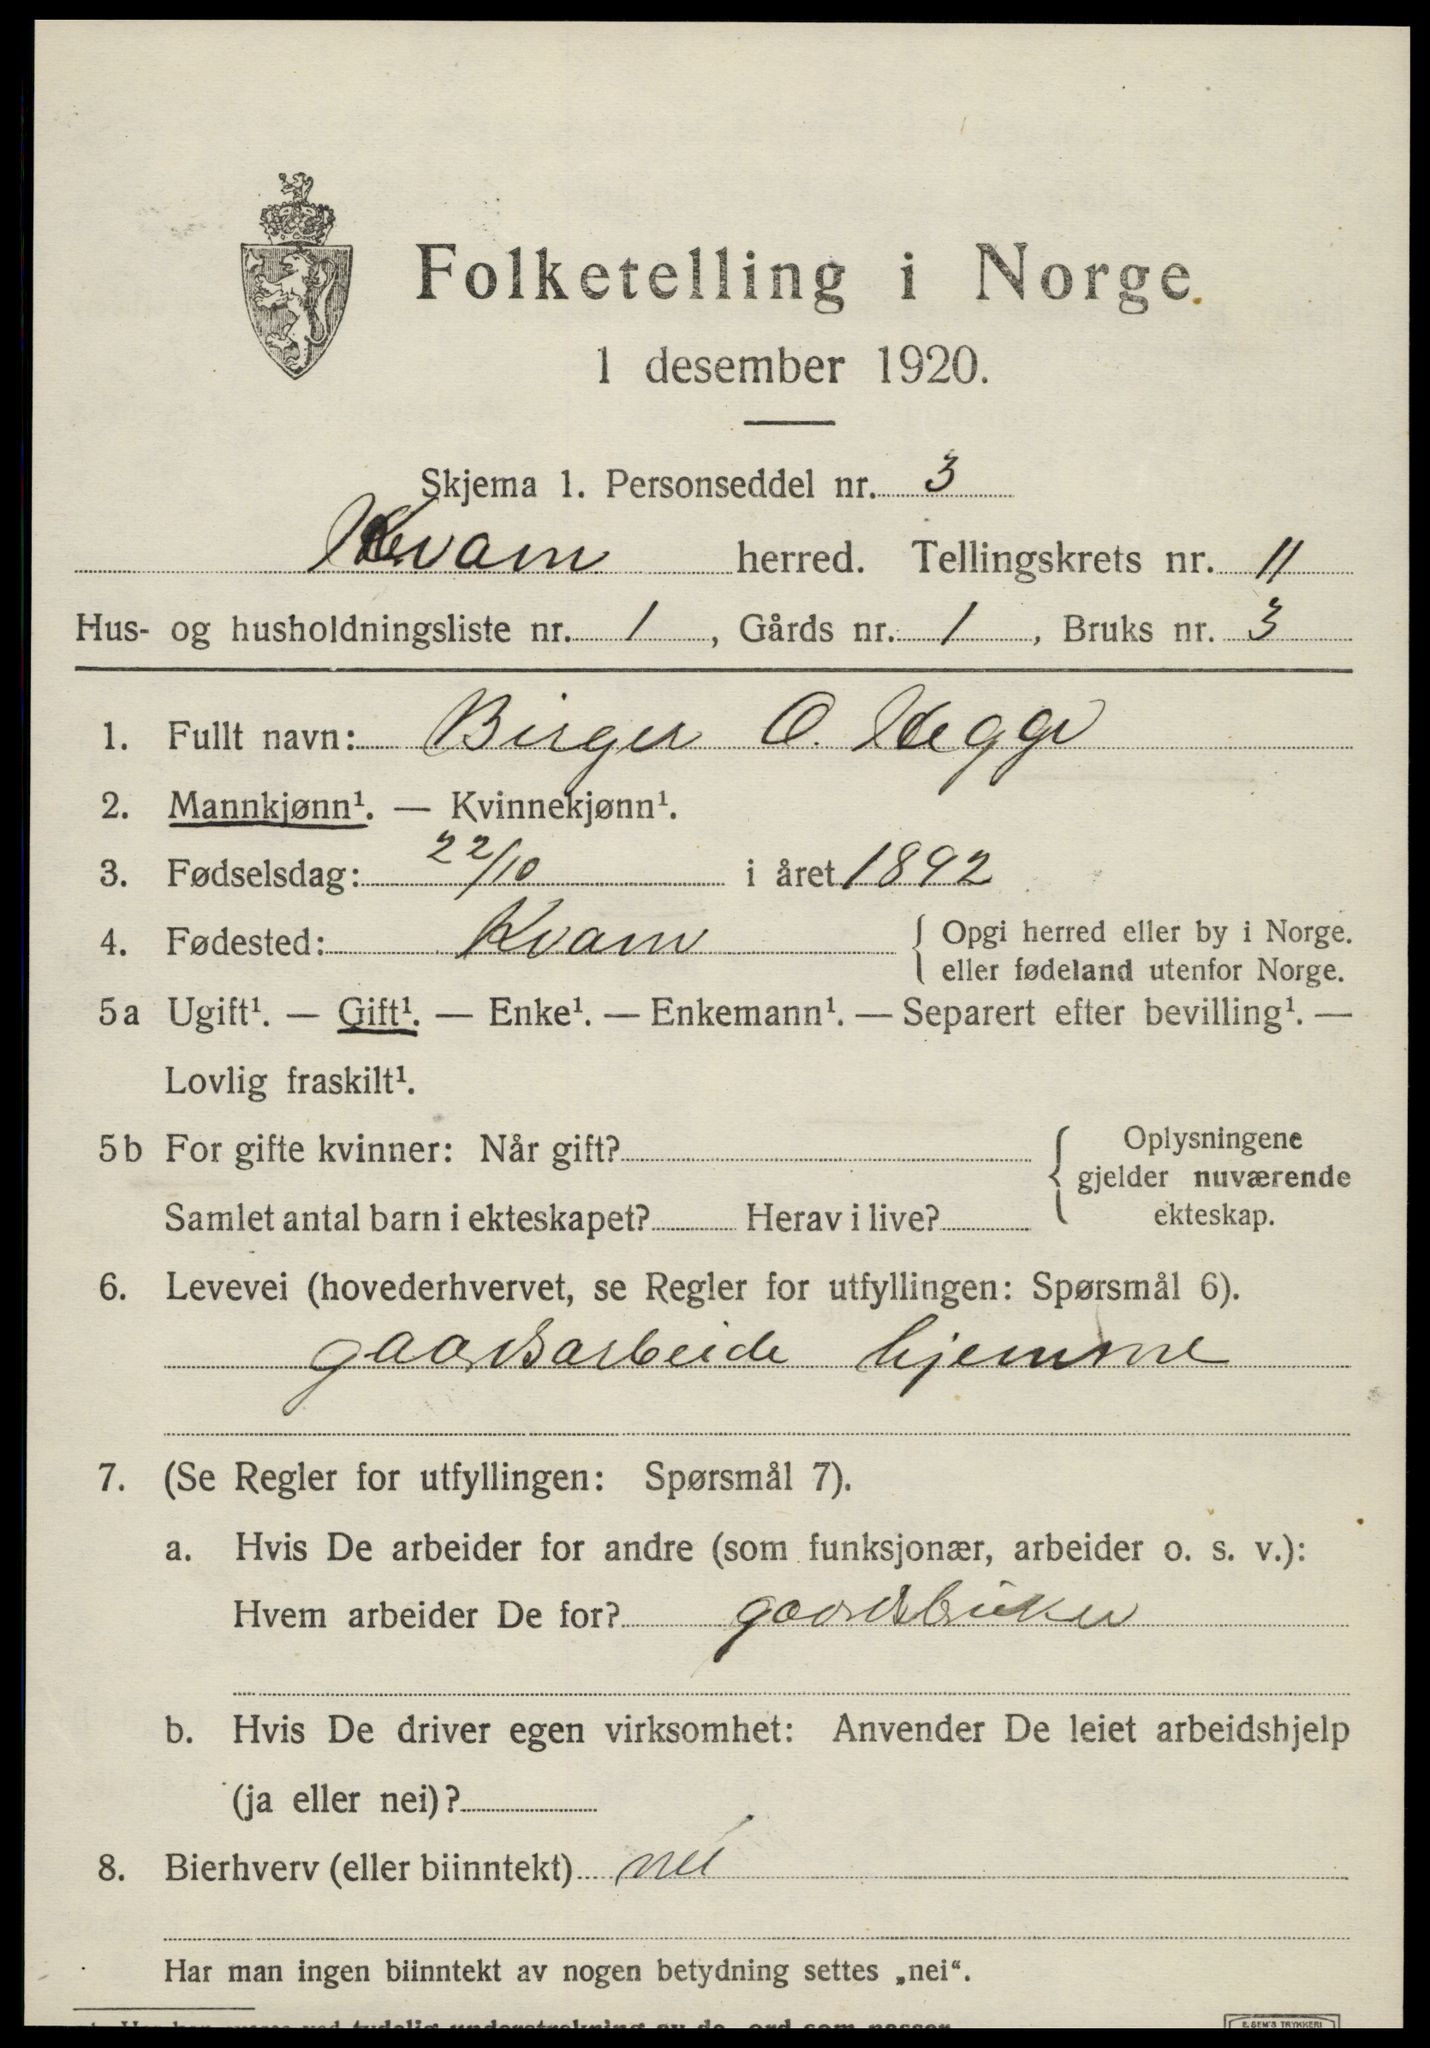 Folketelling i Norge.
1 desember 1920.
Skjema 1. Personseddel nr. 3
Kvam herred. Tellingskrets nr. 11
Hus- og husholdningsliste nr. 1, Gårds nr. 1, Bruks nr. 3
1. Fullt navn: Birger O. Hegge
2. Mannkjønn¹. — Kvinnekjønn¹.
3. Fødselsdag: 22/10 i året 1892
4. Fødested: Kvam { Opgi herred eller by i Norge.
eller fødeland utenfor Norge.
5a Ugift¹. — Gift¹. — Enke¹. — Enkemann¹. — Separert efter bevilling¹. —
Lovlig fraskilt¹.
5b For gifte kvinner: Når gift? { Oplysningene
gjelder nuværende
Samlet antal barn i ekteskapet? Herav i live? ekteskap.
6. Levevei (hovederhvervet, se Regler for utfyllingen: Spørsmål 6).
gaardsarbeide hjemme
7. (Se Regler for utfyllingen: Spørsmål 7).
a. Hvis De arbeider for andre (som funksjonær, arbeider o. s. v.):
Hvem arbeider De for? gaardsbruker
b. Hvis De driver egen virksomhet: Anvender De leiet arbeidshjelp
(ja eller nei)?
8. Bierhverv (eller biinntekt) nei
Har man ingen biinntekt av nogen betydning settes „nei“.
E. SEM'S TRYKKERI